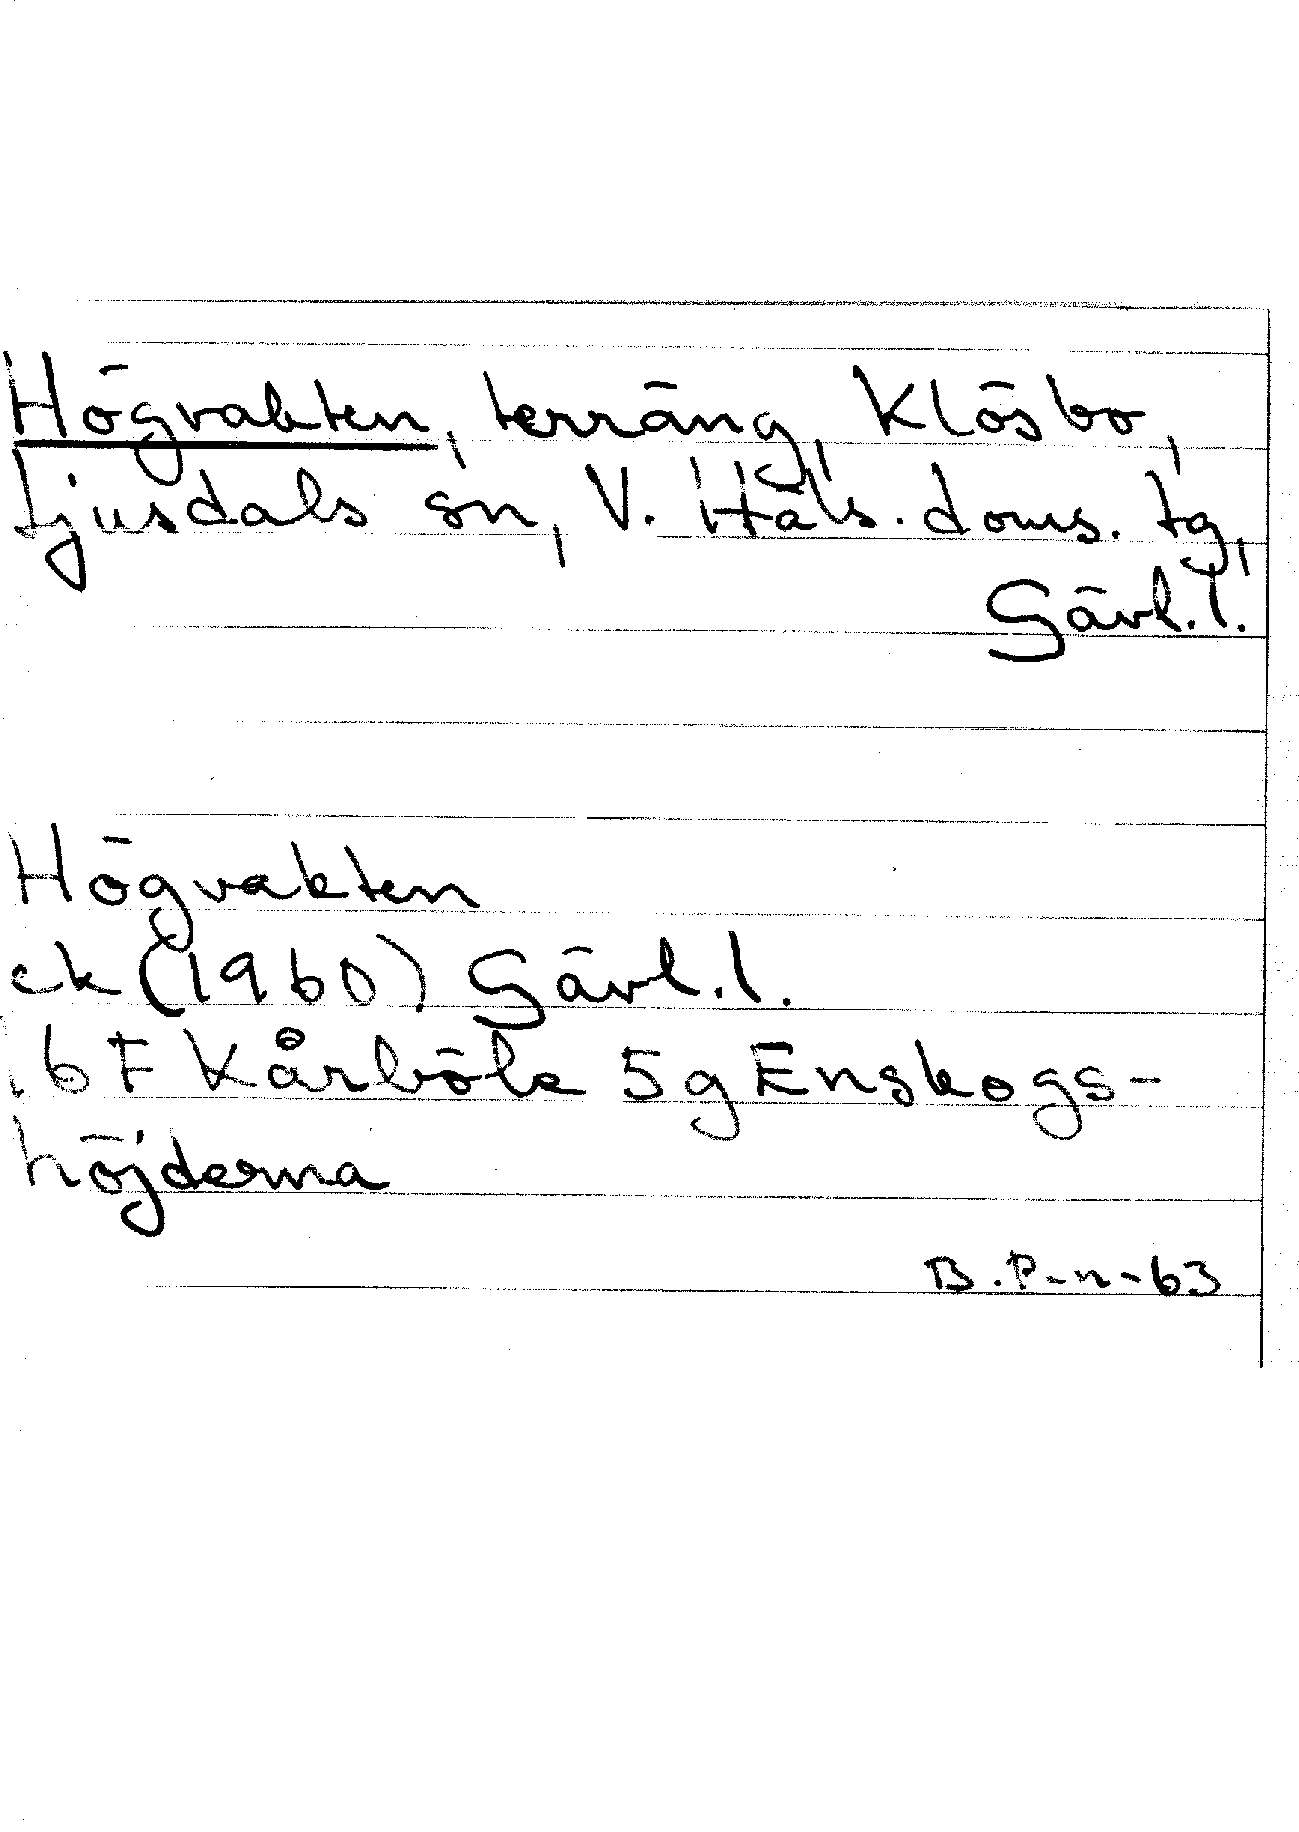 Högvakten, terräng, Klösbo,
Ljusdals sn, V. Häls. doms. tg,
Gävl.l.
Högvakten
ek (1960) Gävl.l.
16 F Kårböle 5g Enskogs-
höjderna
B.P-n-63